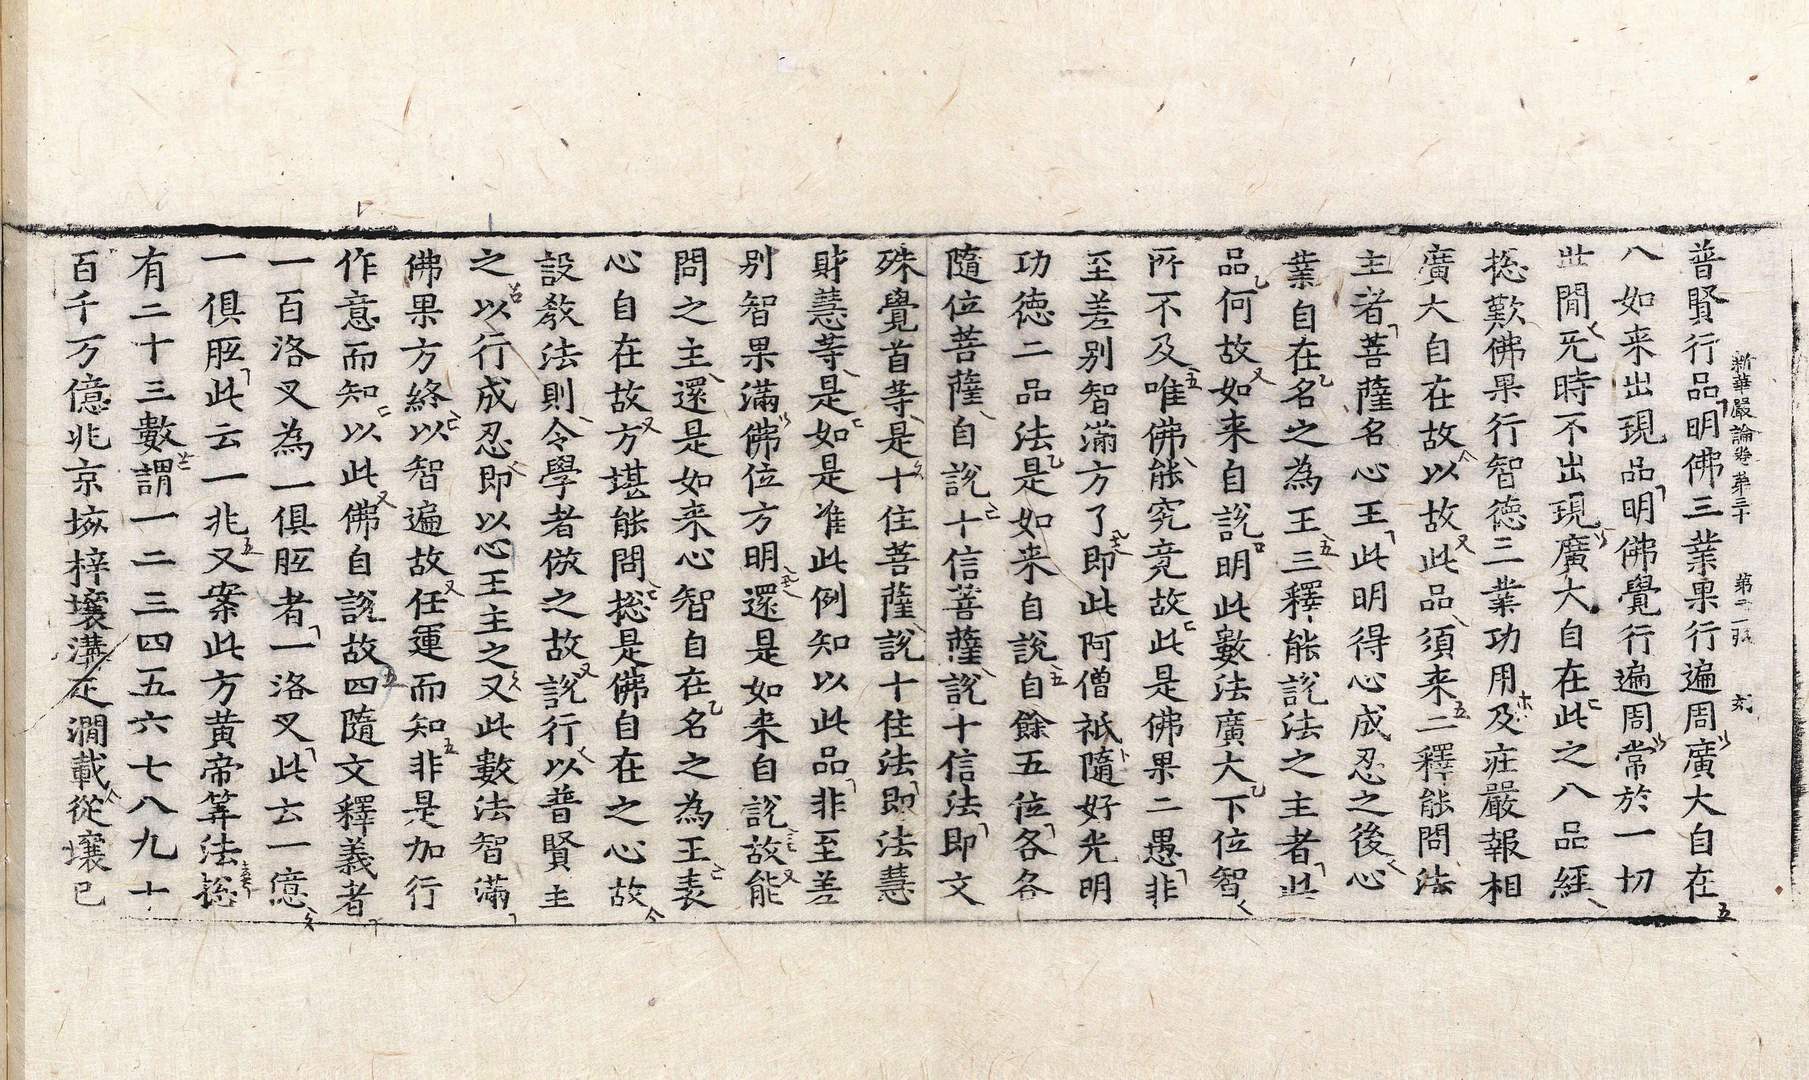 普賢行品明佛三業果行遍周廣大自在
新華嚴論卷第三十 第二張
八如来出現品明佛覺行遍周常於一切
世間无時不出現廣大自在此之八品經
揔歎佛果行智德三業功用及莊嚴報相
廣大自在故以故此品須来二釋能問法
主者菩薩名心王此明得心成忍之後心
業自在名之為王三釋能說法之主者此
品何故如来自說明此數法廣大下位智
所不及唯佛能究竟故此是佛果二愚非
至差别智滿方了即此阿僧祇隨好光明
功德二品法是如来自說自餘五位各各
隨位菩薩自說十信菩薩說十信法即文
殊覺首等是十住菩薩說十住法即法慧
財慧等是如是准此例知以此品非至差
别智果滿佛位方明還是如来自說故能
問之主還是如来心智自在名之為王表
心自在故方堪能問揔是佛自在之心故
設教法則令學者倣之故說行以普賢主
之以行成忍即以心王主之又此數法智滿
佛果方終以智遍故任運而知非是加行
作意而知以此佛自說故四隨文釋義者
一百洛叉為一俱胝者一洛叉此云一億
一俱胝此云一兆又案此方黃帝筭法揔
有二十三數謂一二三四五六七八九十
百千万億兆京垓梓壤溝正澗載從壤已